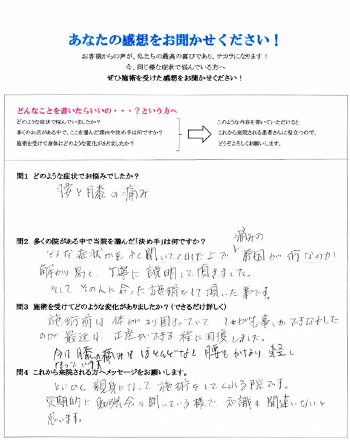 あなたの感想をお聞かせください！
お客様からの声が、私たちの最高の喜びであり、チカラになります！
今、同じ様な症状で悩んでいる方へ
ぜひ施術を受けた感想をお聞かせください！
どんなことを書いたらいいの・・・？という方へ
どのような症状で悩んでいましたか？
多くのお店がある中で、ここを選んだ理由や決め手は何ですか？
施術を受けて身体にどのような変化がありましたか？
このような内容を書いていただけると
これから来院される患者さんに役立つので、
どうぞよろしくお願いします。
問1 どのような症状でお悩みでしたか？
腰と膝の痛み
問2 多くの院がある中で当院を選んだ「決め手」は何ですか？
どんな症状かをよく聞いてくれた上で 痛みの原因が何なのか
解かり易く、丁寧に説明して頂きました。
そして その人に合った施術をして頂いた事です。
問3 施術を受けてどのような変化がありましたか？（できるだけ詳しく）
施術前は、体が 固まっていて しゃがむ事しかできなかった
のが 最近は、正座ができる程に回復しました。
今は 膝の痛みは ほとんどなく 腰も かなり 軽く
なっています
問4 これから来院される方へメッセージをお願いします。
とにかく 親身になって 施術をしてくれる院です。
定期的に 勉強会を開いている様で、知識も 間違いないと
思います。